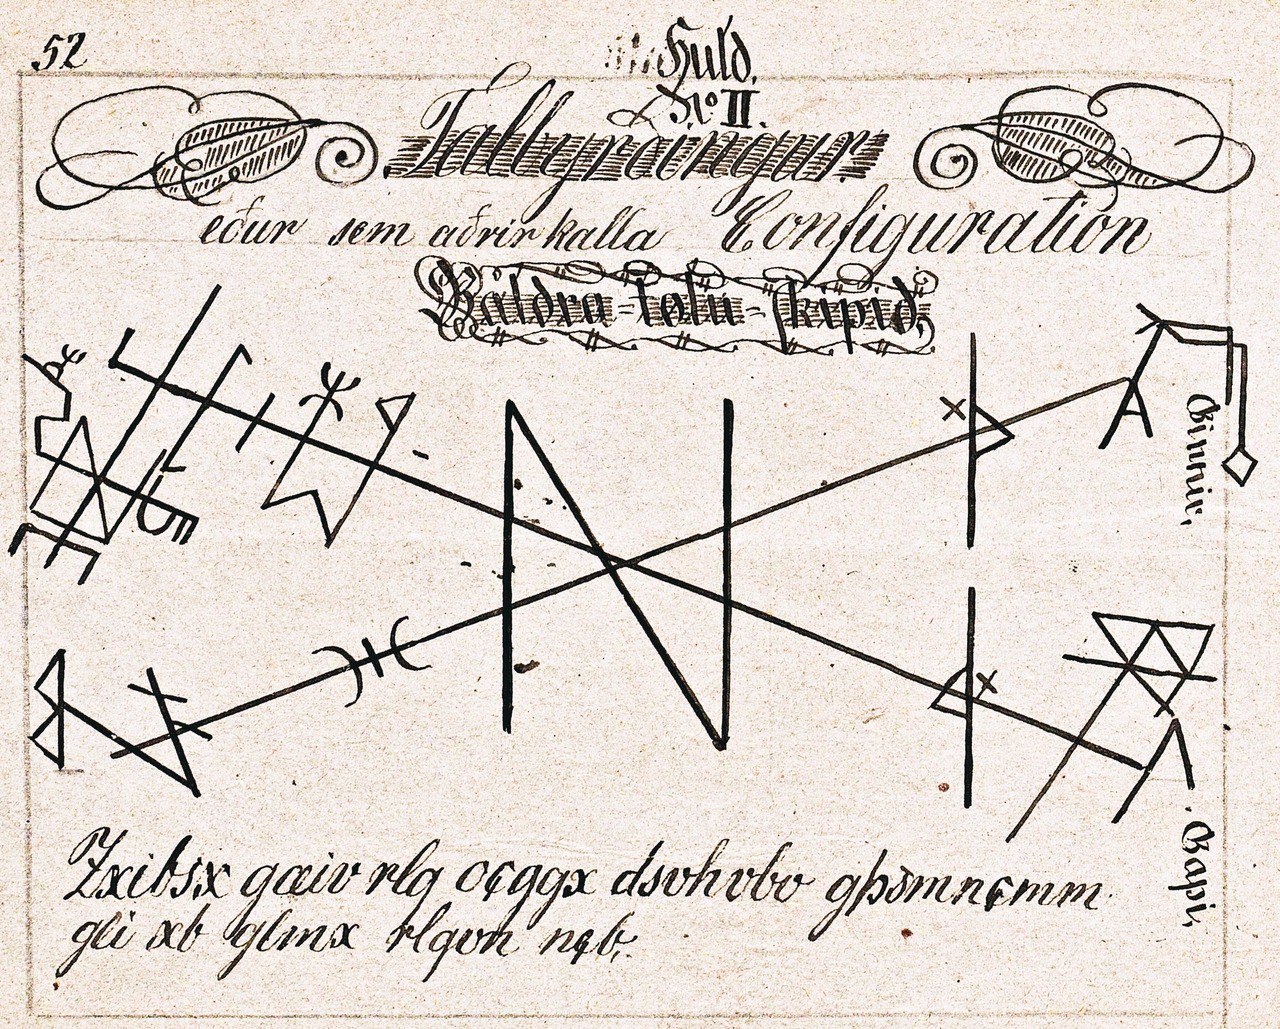 52
Huld.
No II.
Tallbyrdingur
eður sem aðrir kalla Configuration
Galdra=tølu=skipið,
Ginnir,
Gapi,
Zxibsx gæiv rlg ogggx dsvhvbv gþsmnçmm
gli xb glmx rlgvn nçb,